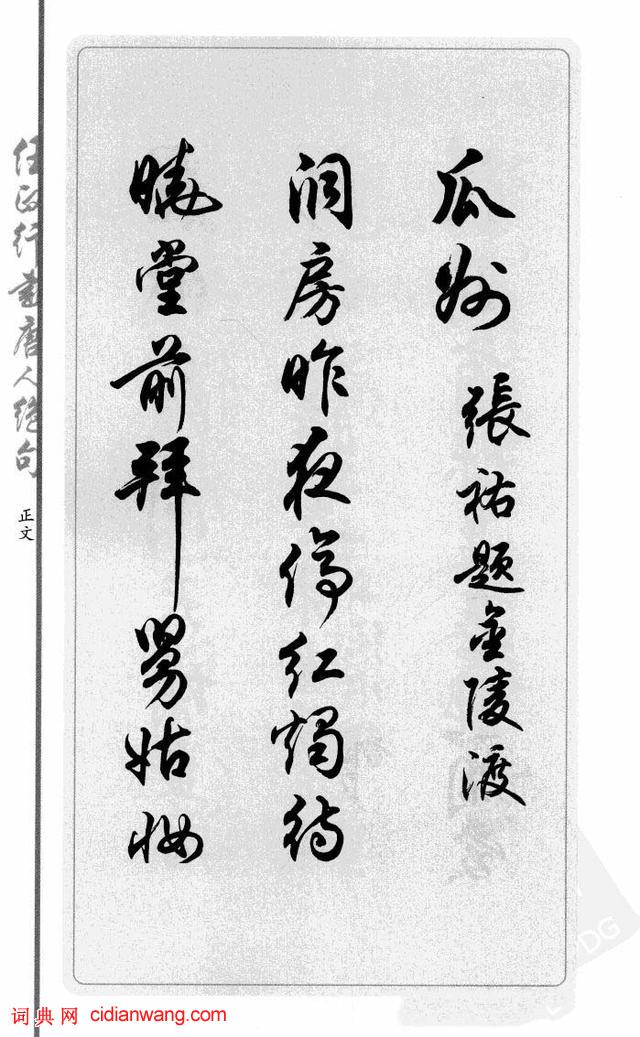 瓜州 張祐題金陵渡
洞房昨夜停紅燭待
曉堂前拜舅姑妝
任政行書唐人绝句
正文
词典网 cidianwang.com